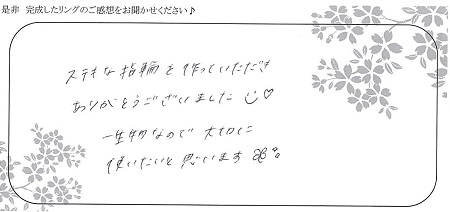 是非 完成したリングのご感想をお聞かせください♪
ステキな指輪を作っていただき
ありがとうございました
一生物なので 大切に
使いたいと思います